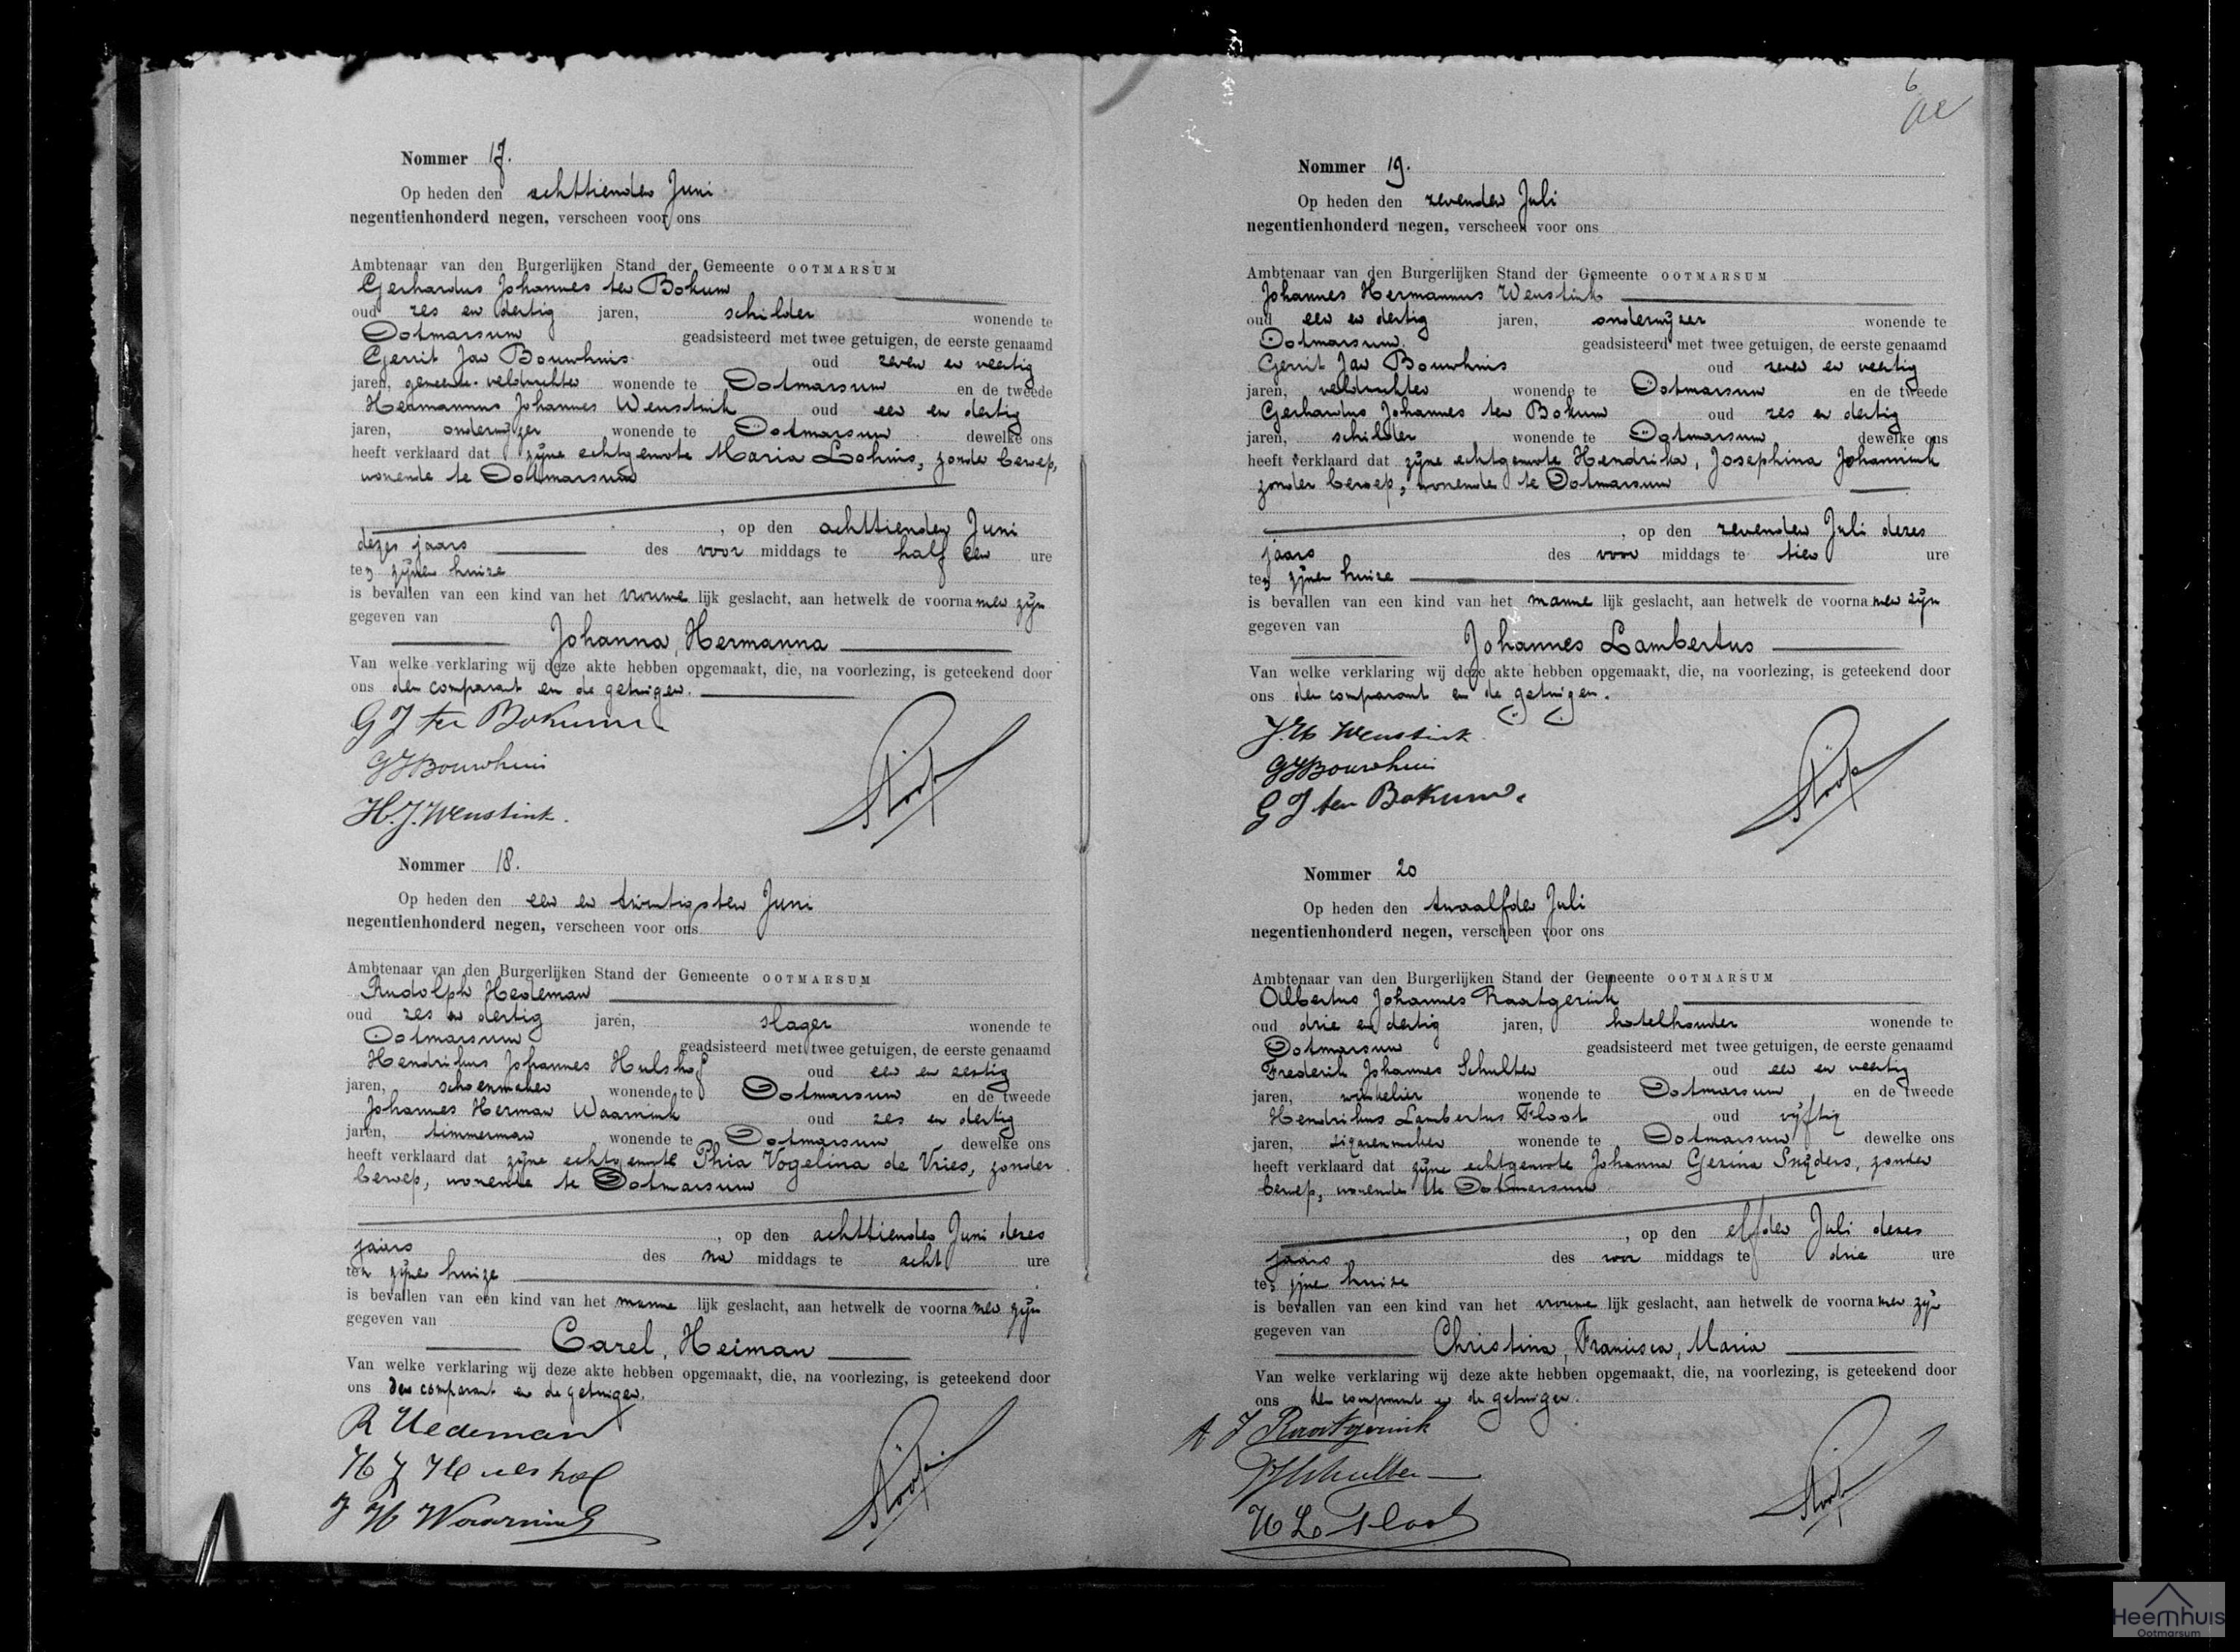 Nommer 17.
Op heden den achttienden Juni
negentienhonderd negen, verscheen voor ons
Ambtenaar van den Burgerlijken Stand der Gemeente OOTMARSUM
Gerhardus Johannes ten Bokum
oud zes en dertig jaren, schilder wonende te
Ootmarsum geadsisteerd met twee getuigen, de eerste genaamd
Gerrit Jan Bouwhuis oud zeven en veertig
jaren, gemeente-veldwachter wonende te Ootmarsum en de tweede
Hermannus Johannes Wenstink oud een en dertig
jaren, onderwijzer wonende te Ootmarsum dewelke ons
heeft verklaard dat zijne echtgenoote Maria Lohuis, zonder beroep,
wonende te Ootmarsum
, op den achttienden Juni
dezes jaars des voor middags te half een ure
ten zijnen huize
is bevallen van een kind van het vrouwe lijk geslacht, aan hetwelk de voorna men zijn
gegeven van
Johanna, Hermanna
Van welke verklaring wij deze akte hebben opgemaakt, die, na voorlezing, is geteekend door
ons den comparant en de getuigen.
G J ten Bokum
GJBouwhuis
H.J. Wenstink.
Nommer 18.
Op heden den een en twintigsten Juni
negentienhonderd negen, verscheen voor ons
Ambtenaar van den Burgerlijken Stand der Gemeente OOTMARSUM
Rudolph Hedeman
oud zes en dertig jaren, slager wonende te
Ootmarsum geadsisteerd met twee getuigen, de eerste genaamd
Hendrikus Johannes Hulshof oud een en zestig
jaren, schoenmaker wonende te Ootmarsum en de tweede
Johannes Herman Waarnink oud zes en dertig
jaren, timmerman wonende te Ootmarsum dewelke ons
heeft verklaard dat zijne echtgenoote Phia Vogelina de Vries, zonder
beroep, wonende te Ootmarsum
, op den achttienden Juni dezes
jaars des na middags te acht ure
ten zijnen huize
is bevallen van een kind van het manne lijk geslacht, aan hetwelk de voorna men zijn
gegeven van
Carel, Heiman
Van welke verklaring wij deze akte hebben opgemaakt, die, na voorlezing, is geteekend door
ons den comparant en de getuigen.
R Hedeman
H J Hulshof
J H Waarnink
6
Nommer 19.
Op heden den zevenden Juli
negentienhonderd negen, verscheen voor ons
Ambtenaar van den Burgerlijken Stand der Gemeente OOTMARSUM
Johannes Hermannus Wenstink
oud een en dertig jaren, onderwijzer wonende te
Ootmarsum geadsisteerd met twee getuigen, de eerste genaamd
Gerrit Jan Bouwhuis oud zeven en veertig
jaren, veldwachter wonende te Ootmarsum en de tweede
Gerhardus Johannes ten Bokum oud zes en dertig
jaren, schilder wonende te Ootmarsum dewelke ons
heeft verklaard dat zijne echtgenoote Hendrika, Josephina Johannink
zonder beroep, wonende te Ootmarsum
, op den zevenden Juli dezes
jaars des voor middags te tien ure
ten zijnen huize
is bevallen van een kind van het manne lijk geslacht, aan hetwelk de voorna men zijn
gegeven van
Johannes Lambertus
Van welke verklaring wij deze akte hebben opgemaakt, die, na voorlezing, is geteekend door
ons den comparant en de getuigen.
J.H. Wenstink
GJBouwhuis
G J ten Bokum
Nommer 20
Op heden den twaalfden Juli
negentienhonderd negen, verscheen voor ons
Ambtenaar van den Burgerlijken Stand der Gemeente OOTMARSUM
Albertus Johannes Raatgerink
oud drie en dertig jaren, hotelhouder wonende te
Ootmarsum geadsisteerd met twee getuigen, de eerste genaamd
Frederik Johannes Schulten oud een en veertig
jaren, winkelier wonende te Ootmarsum, en de tweede
Hendrikus Lambertus Sloot oud vijftig
jaren, sigarenmaker wonende te Ootmarsum dewelke ons
heeft verklaard dat zijne echtgenoote Johanna Gezina Snijders, zonder
beroep, wonende te Ootmarsum
, op den elfden Juli dezes
jaars des voor middags te drie ure
ten zijnen huize
is bevallen van een kind van het vrouwe lijk geslacht, aan hetwelk de voorna men zijn
gegeven van
Christina, Francisca, Maria
Van welke verklaring wij deze akte hebben opgemaakt, die, na voorlezing, is geteekend door
ons den comparant en de getuigen.
A J Raatgerink
FJSchulten
H L Sloot
Heemhuis
Ootmarsum